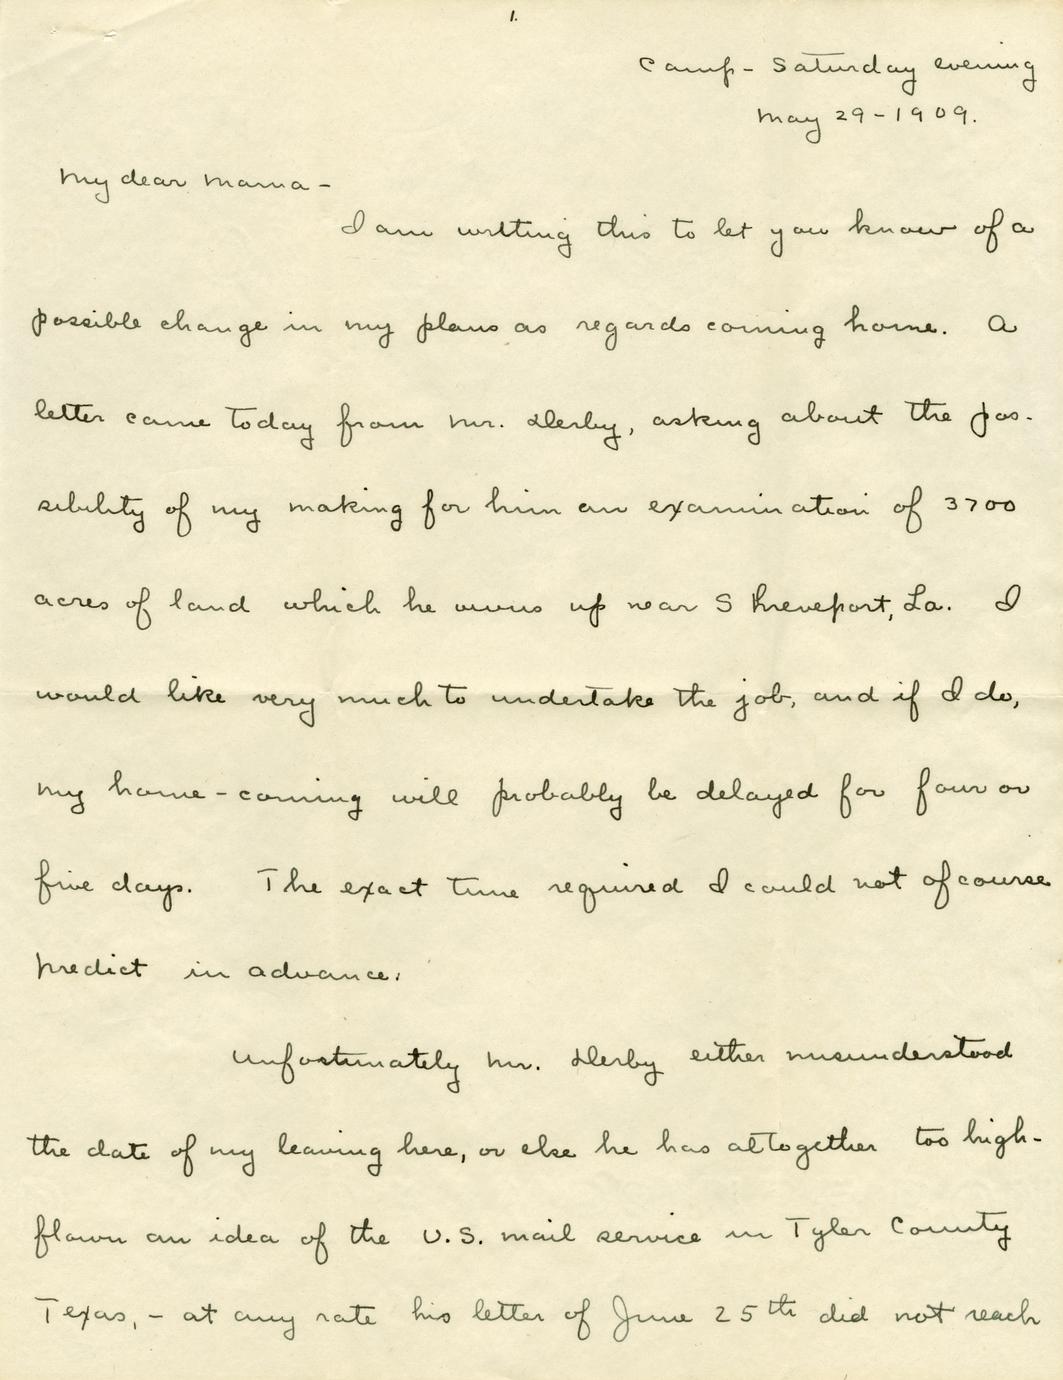 1.
Camp - Saturday evening
May 29 - 1909.
My dear Mama -
I am writing this to let you know of a
possible change in my plans as regards coming home. A
letter came today from Mr. Derby, asking about the pos-
sibility of my making for him an examination of 3700
acres of land which he owns up near Shreveport, La. I
would like very much to undertake the job, and if I do,
my home-coming will probably be delayed for four or
five days. The exact time required I could not of course
predict in advance.
Unfortunately Mr. Derby either misunderstood
the date of my leaving here, or else he has altogether too high-
flown an idea of the U.S. mail service in Tyler County
Texas, - at any rate his letter of June 25th did not reach